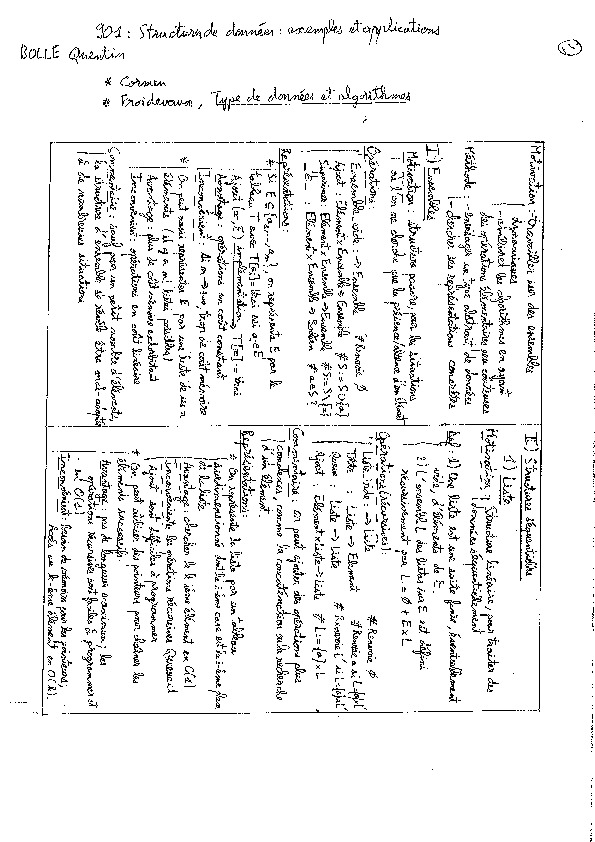 901 : Structures de données : exemples et applications
BOLLE Quentin
* Cormen
* Froidevaux, Type de données et algorithmes
Motivation - travailler sur des ensembles
dynamiques
- améliorer les algorithmes en ayant
des opérations élémentaires peu coûteuses
Méthode : - envisager un type abstrait de données
- chercher des représentations concrètes
I) Ensembles
Motivation : structure pauvre, pour les situations
où l'on ne cherche que la présence/absence d'un élément
Opérations :
Ensemble vide : → Ensemble # Renvoie ∅
Ajout : Element x Ensemble → Ensemble # S := S ∪ {a}
Supprime : Element x Ensemble → Ensemble # S := S \ {a}
_ ∈ _ : Element x Ensemble → Booléen # a ∈ S ?
Représentations :
* Si E ⊆ {a1, ..., an}, on représente E par le
tableau T avec T[i] = Vrai ssi ai ∈ E
Avantage : opérations en coût constant
Inconvénient : Si n → ∞, trop de coût mémoire
* On peut aussi représenter E par une liste de ses n
éléments
Avantage : plus de coût mémoire exorbitant
Inconvénient : opérations en coût linéaire
Commentaire : sauf pour un petit nombre d'éléments,
la structure d'ensemble se révèle être mal adaptée
à de nombreuses situations
II) Structures séquentielles
1) Liste
Motivation : Structure linéaire, pour traiter des
données séquentiellement
Def : 1) Une liste est une suite finie, éventuellement
vide, d'éléments de E
2) L'ensemble L des listes sur E est défini
récursivement par L = ∅ + E x L
Opérations (récursives) :
Liste vide : → Liste # Renvoie ∅
Tête : Liste → Element
Queue : Liste → Liste
Ajout : Element x Liste → Liste
Commentaire : on peut ajouter des opérations plus
complexes, comme la concaténation ou la recherche
d'un élément.
Représentations :
* On représente la liste par un tableau
et la liste
Avantage : chercher le k-ième élément en O(1)
Inconvénients : les opérations récursives Queue et
Ajout sont difficiles à programmer
* On peut utiliser des pointeurs pour chaîner les
éléments successifs.
Avantage : pas de longueur maximum ; les
opérations récursives sont faciles à programmer et
en O(1)
Inconvénient : besoin de mémoire pour les pointeurs,
Accès au k-ième élément en O(k).